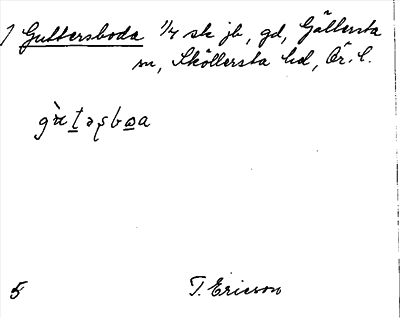 1 Guttersboda 1/4 sk jb, gd, Gällersta
sn, Sköllersta hd, Ör. l.
5 T. Ericson